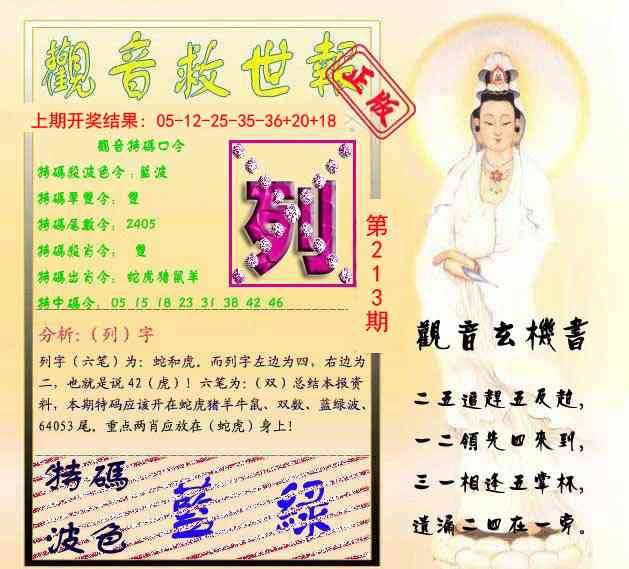 觀音救世報
正版
上期开奖结果：05-12-25-35-36+20+18
觀音特碼口令
特碼段波色令：藍波
特碼單雙令： 雙
特碼尾數令： 2405
特碼段肖令： 雙
特碼出肖令： 蛇虎猪鼠羊
特中碼令： 05 15 18 23 31 38 42 46
列
第213期
分析:（列）字
列字（六笔）为：蛇和虎。而列字左边为四，右边为
二，也就是说 42（虎）！六笔为：（双）总结本报资
料，本期特码应该开在蛇虎猪羊牛鼠、双数、蓝绿波、
64053 尾。重点两肖应放在（蛇虎）身上！
特碼
波色
藍 綠
觀音玄機書
二五追趕五反趋，
一二領先四來到，
三一相逢五掌杯，
遺漏二四在一旁。